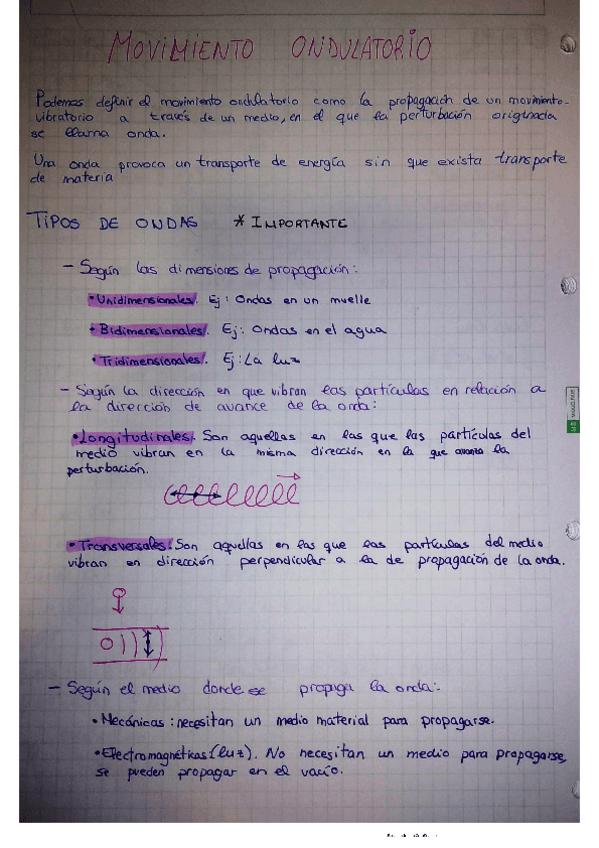 MOVIMIENTO ONDULATORIO
Podemos definir el movimiento ondulatorio como la propagación de un movimiento
vibratorio a través de un medio, en el que la perturbación originada
se llama onda.
Una onda provoca un transporte de energía sin que exista transporte
de materia
TIPOS DE ONDAS * IMPORTANTE
- Según las dimensiones de propagación:
• Unidimensionales/. Ej: Ondas en un muelle
• Bidimensionales/. Ej: Ondas en el agua
• Tridimensionales/. Ej: La luz
- Según la dirección en que vibran las partículas en relación a
la dirección de avance de la onda:
• Longitudinales/. Son aquellas en las que las partículas del
medio vibran en la misma dirección en la que avanza la
perturbación.
• Transversales/. Son aquellas en las que las partículas del medio
vibran en dirección perpendicular a la de propagación de la onda.
- Según el medio donde se propaga la onda:
• Mecánicas: necesitan un medio material para propagarse.
• Electromagnéticas (luz). No necesitan un medio para propagarse,
se pueden propagar en el vacío.